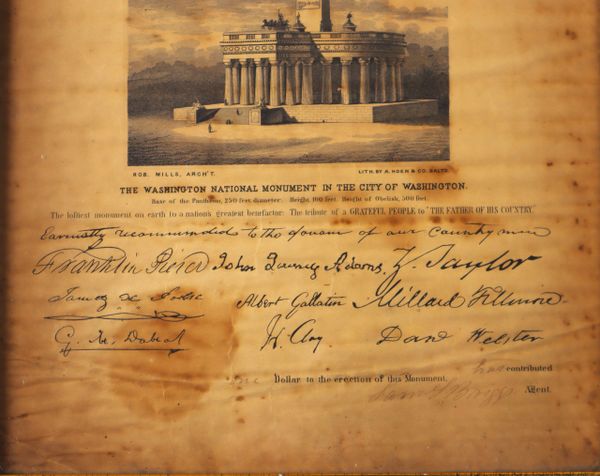 ROB. MILLS, ARCH'T. LITH. BY A. HOEN & CO. BALTO.
THE WASHINGTON NATIONAL MONUMENT IN THE CITY OF WASHINGTON.
Base of the Pantheon, 250 feet diameter. Height 100 feet. Height of Obelisk, 500 feet.
The loftiest monument on earth to a nation's greatest benefactor: The tribute of a GRATEFUL PEOPLE to "THE FATHER OF HIS COUNTRY."
Earnestly recommended to the favour of our countrymen
Franklin Pierce John Quincy Adams Z. Taylor
James K Polk Albert Gallatin Millard Fillmore.
G. M. Dallas H. Clay Danl Webster
has contributed
One Dollar to the erection of this Monument.
Agent.